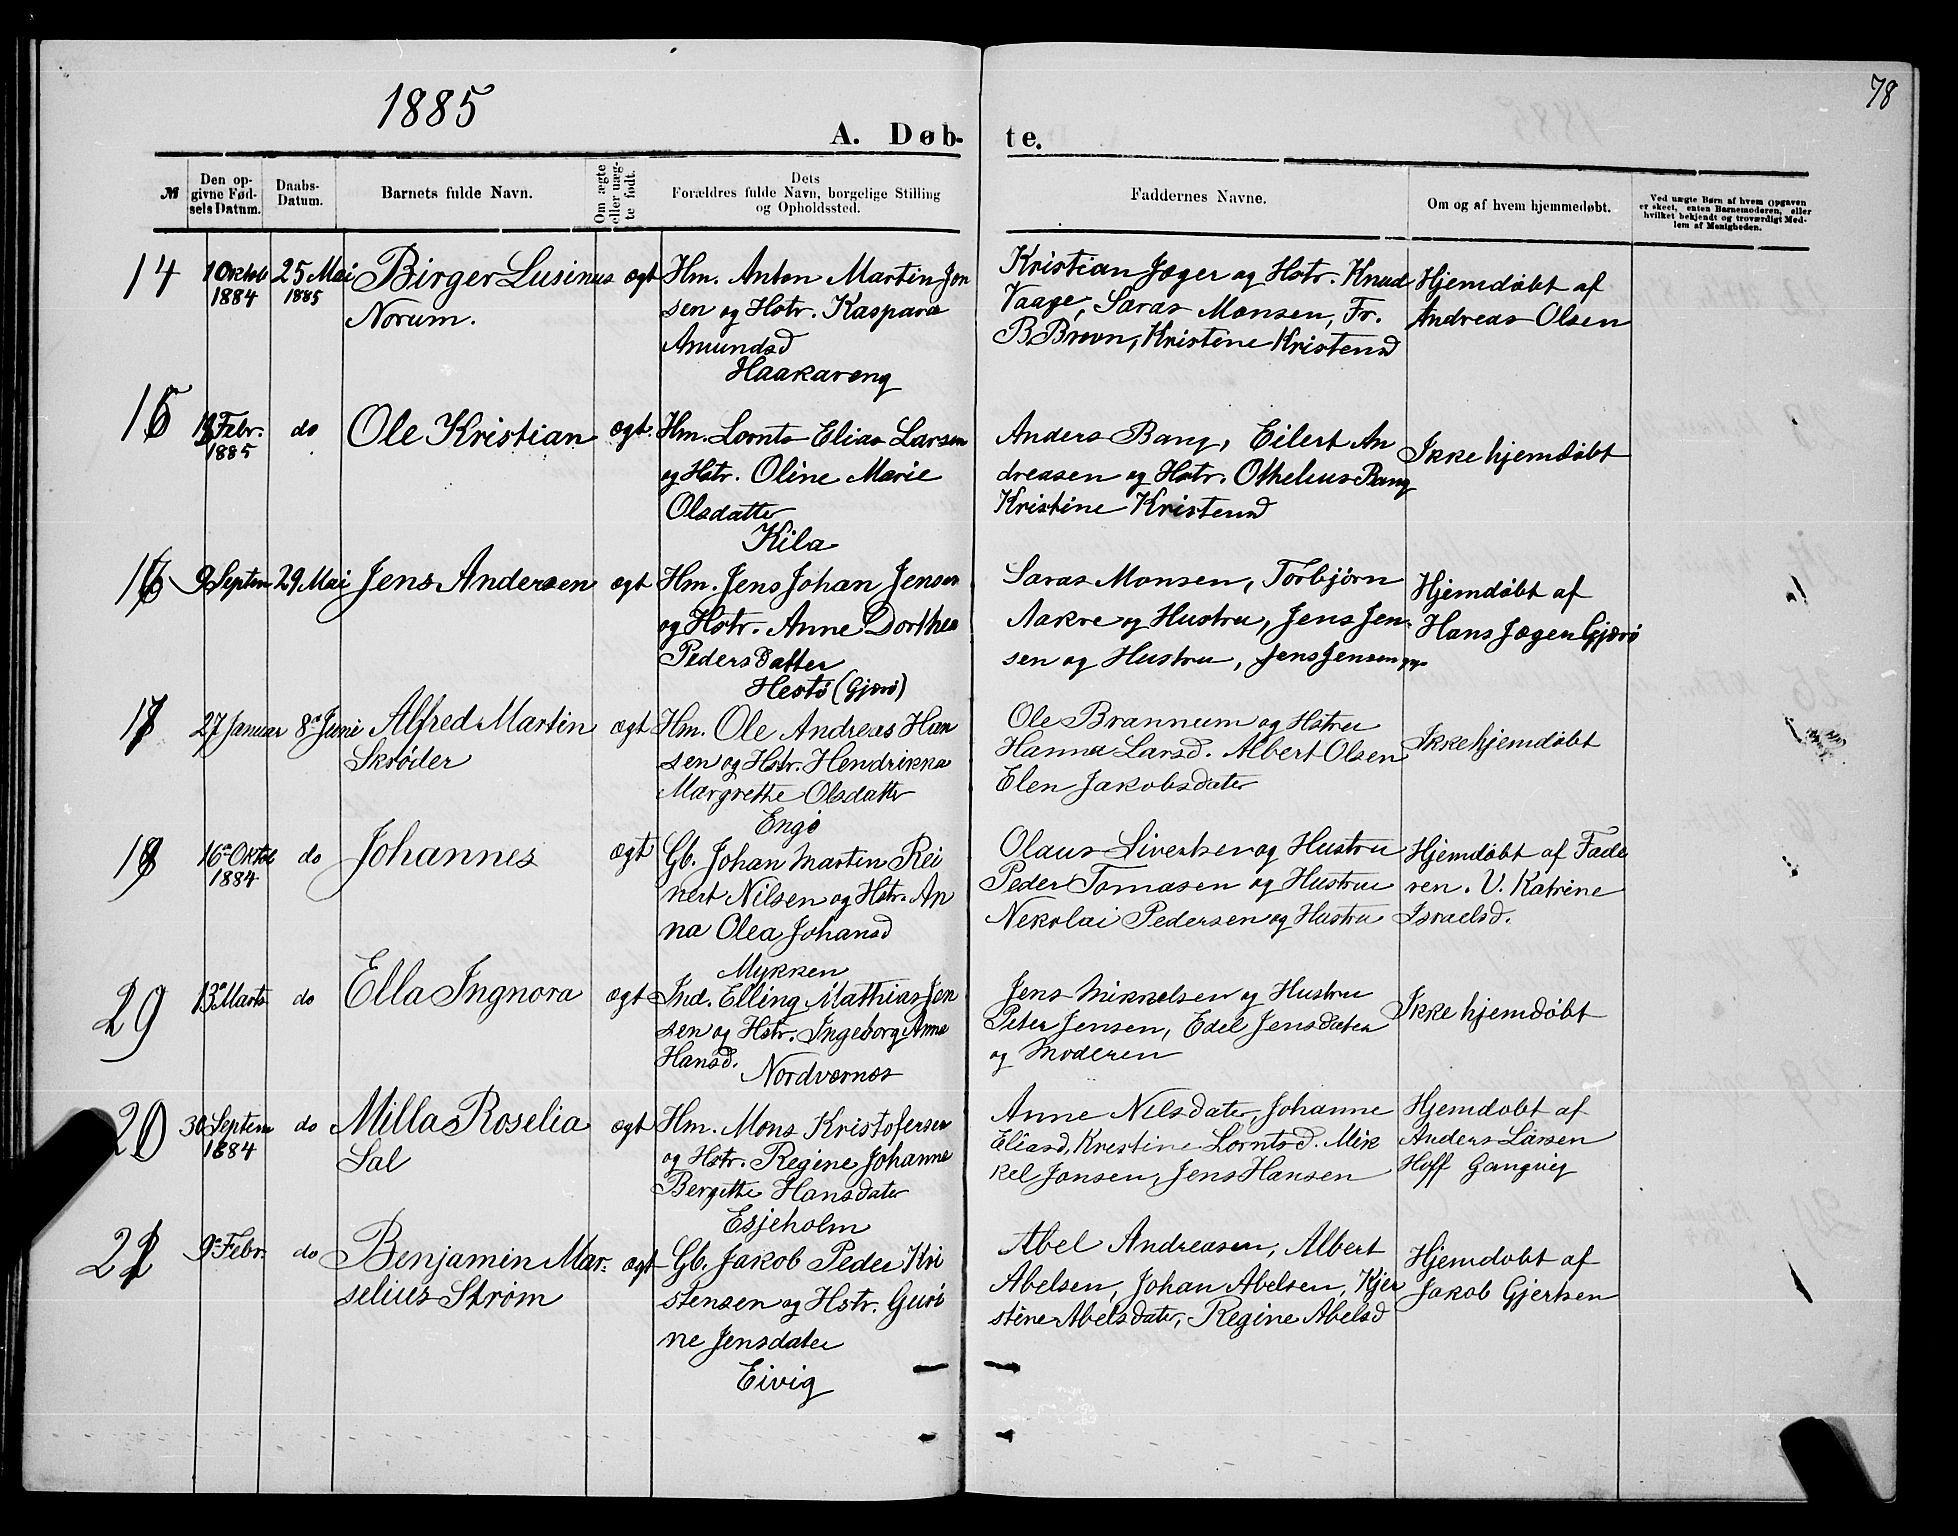 1885
78
A. Døb-
te.
№
Den op-
givne Fød-
sels Datum.
Daabs-
Datum.
Barnets fulde Navn.
Om ægte
eller uæg-
te født.
Dets
Forældres fulde Navn, borgelige Stilling
og Opholdssted.
Faddernes Navne.
Om og af hvem hjemmedøbt.
Ved uægte Børn af hvem Opgaven
er skeet, enten Barnemoderen, eller
hvilket bekjendt og troværdigt Med-
lem af Menigheden.
14
1 Oktob
1884
25 Mai
1885
Birger Lusinus
Norum.
ægt
Hm. Anton Martin Jon
sen og Hstr. Kaspara
Amundsd
Haakaveng
Kristian Jæger og Hstr. Knud
Vaage, Saras Monsen, Fr.
B Brovn, Kristine Kristensd
Hjemdöbt af
Andreas Olsen
15
Febr.
1885
do
Ole Kristian
ægt.
Hm. Lornts Elias Larsen
og Hstr. Oline Marie
Olsdatter
Kila
Anders Bang, Eilert An
dreasen og Hstr. Othelius Bang
Kristine Kristensd
Ikke hjemdöbt
16
9 Septem
29 Mai
Jens Andersen
ægt
Hm. Jens Johan Jensen
og Hstr. Anne Dorthea
Pedersdatter
Hestö (Gjærö)
Saras Monsen, Torbjörn
Aakre og Hustru, Jens Jen-
sen og Hustru, Jens Jensen yg.
Hjemdöbt af
Hans Jæger Gjærö
17
27 Januar
8de Juni
Alfred Martin
Skrøder
ægt
Hm. Ole Andreas Han
sen og Hstr. Hendrikka
Margrethe Olsdatter
Engö
Ole Brannum og Hstru
Hanna Larsd. Albert Olsen
Elen Jakobsdater
Ikke hjemdöbt
18
16de Oktb
1884
do
Johannes
ægt
Gb. Johan Martin Rei
nert Nilsen og Hstr. An
na Olea Johansd
Mykken
Olaus Sivertsen og Hustru
Peder Tomasen og Hustru
Nekolai Pedersen og Hustru
Hjemdöbt af Fade
ren. V. Katrine
Israelsd.
29
13de Marts
do
Ella Ingnora
ægt
Ind. Elling Mathias Jen
sen og Hstr. Ingeborg Anna
Hansd.
Nordvernes
Jens Mikkelsen og Hustru
Peter Jensen, Edel Jensdater
og Moderen
Ikke hjemdöbt
20
30 Septem
1884
do
Milla Roselia
Sal
ægt
Hm. Mons Kristofersen
og Hstr. Regine Johanna
Bergitte Hansdater
Esjeholm
Anne Nilsdater, Johanne
Eliasd, Krestine Lorntsd. Mik
kel Jonsen, Jens Hansen
Hjemdobt af
Anders Larsen
Hoff Gangvig
21
9de Febr.
do
Benjamin Mar-
selius Strøm
ægt
Gb. Jakob Peder Kri
stensen og Hstr. Guri
ne Jensdater
Eivig
Abel Andreasen, Albert
Abelsen, Johan Abelsen, Kjer
stine Abelsdater, Regine Abelsd
Hjemdobt af
Jakob Gjertsen